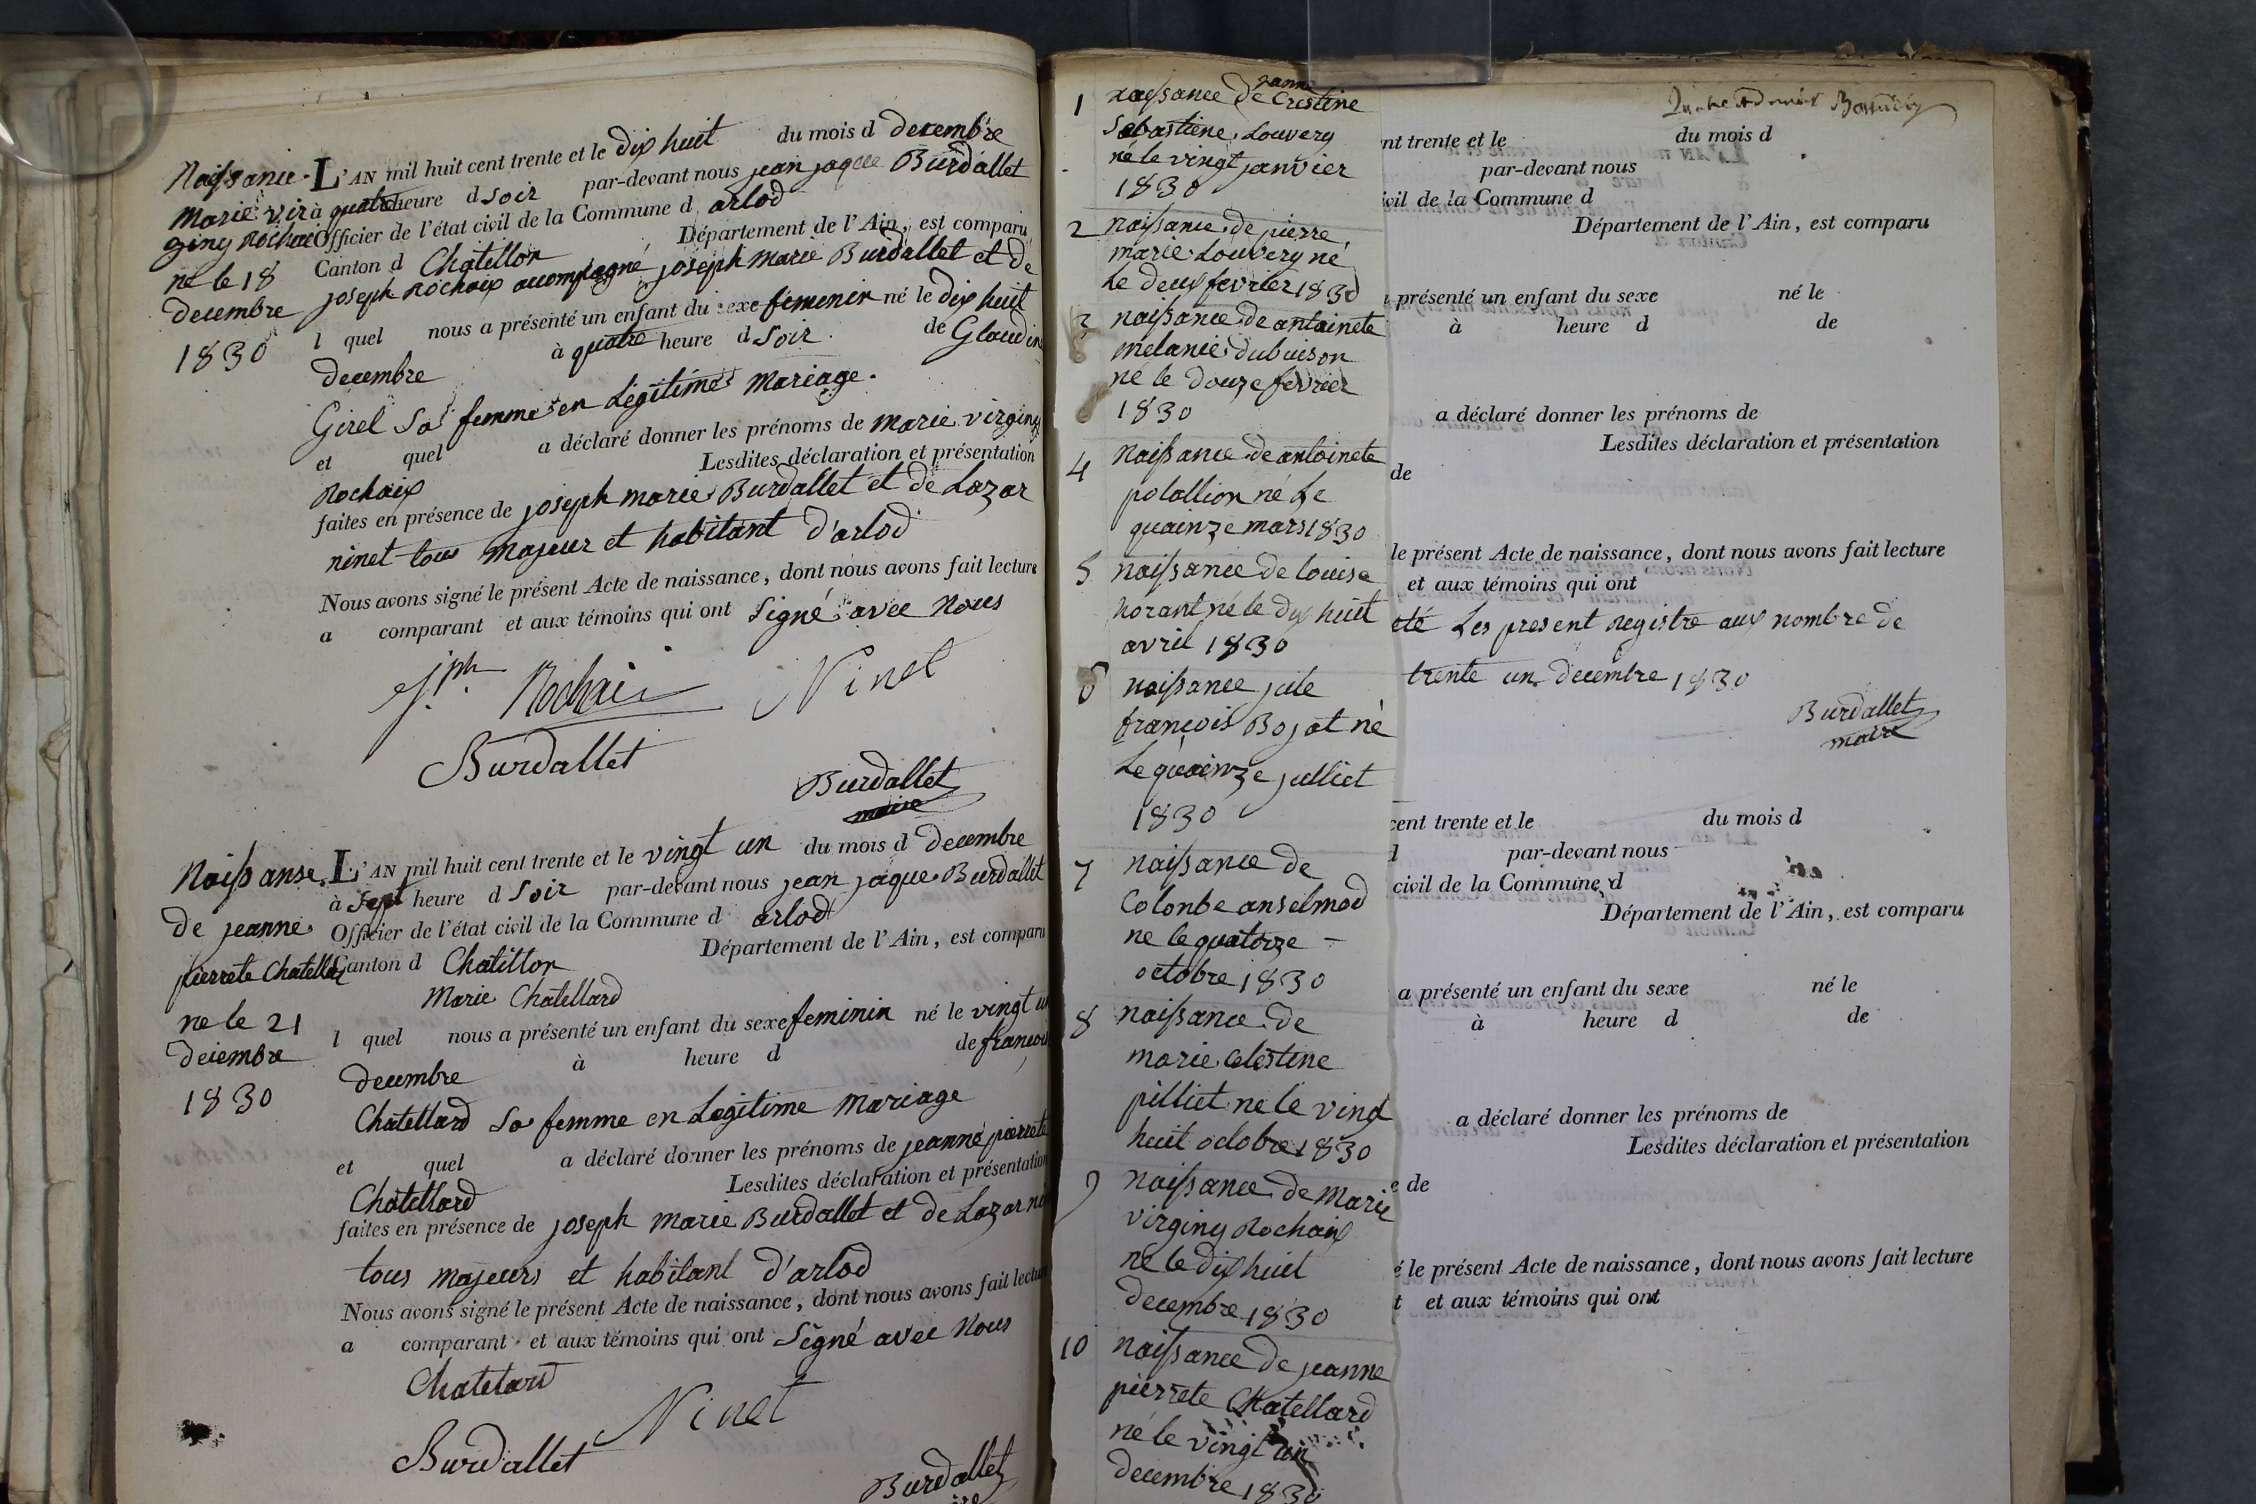 Naissance
Marie vir
giny Rochaix
né le 18
decembre
1830
L'AN mil huit cent trente et le dix huit du mois d decembre
à quatre heure d soir par-devant nous jean jaque Burdallet
Officier de l'état civil de la Commune d arlod
Canton d Chatillon Département de l'Ain, est comparu
joseph Rochaix accompagné joseph marie Burdallet et de
l quel nous a présenté un enfant du sexe femenin né le dix huit
decembre à quatre heure d soir de Glaudin
Girel sa femme en Légitime mariage.
et quel a déclaré donner les prénoms de marie virginy
Rochaix Lesdites déclaration et présentation
faites en présence de joseph marie Burdallet et de Lazar
ninet tous majeur et habitant d'arlod
Nous avons signé le présent Acte de naissance, dont nous avons fait lecture
a comparant et aux témoins qui ont signé avec nous
Jph Rochaix Ninet
Burdallet
Burdallet
maire
Naissanse
de jeanne
pierrete Chatellard
né le 21
decembre
1830
L'AN mil huit cent trente et le vingt un du mois d decembre
à sept heure d soir par-devant nous jean jaque Burdallet
Officier de l'état civil de la Commune d arlod
Canton d Chatillon Département de l'Ain, est comparu
Marie Chatellard
l quel nous a présenté un enfant du sexe feminin né le vingt un
decembre à heure d de francois
Chatellard sa femme en Legitime mariage
et quel a déclaré donner les prénoms de jeanne pierrete
Chatellard Lesdites déclaration et présentation
faites en présence de joseph marie Burdallet et de Lazar
tous majeurs et habitant d'arlod
Nous avons signé le présent Acte de naissance, dont nous avons fait lecture
a comparant et aux témoins qui ont signé avec nous
Chatelard
Ninet
Burdallet
Burdallet
1 naissance de jeanne Crestine
Sebastiene Louvery
né le vingt janvier
1830
2 naissance de pierre
marie Louvery né
Le deux fevrier 1830
3 naissance de antoinete
melanie dubuison
né le douze fevrier
1830
4 naissance de antoinete
polallion né Le
quainze mars 1830
5 naissance de louise
norant né le dix huit
avril 1830
6 naissance jule
francois Bojat né
Le quainze julliet
1830
7 naissance de
Colonbe anselmod
ne le quatorze
octobre 1830
8 naissance de
marie celestine
pilliet ne le vingt
huit octobre 1830
9 naissance de Marie
virginy Rochaix
né le dix huit
decembre 1830
10 naissance de jeanne
pierrete Chatellard
né le vingt un
decembre 1830
nt trente et le du mois d
par-devant nous
ivil de la Commune d
Département de l'Ain, est comparu
présenté un enfant du sexe né le
à heure d de
a déclaré donner les prénoms de
Lesdites déclaration et présentation
de
le présent Acte de naissance, dont nous avons fait lecture
et aux témoins qui ont
eté Les present Registre aux nombre de
trente un decembre 1830
Burdallet
maire
cent trente et le du mois d
par-devant nous
civil de la Commune d
Département de l'Ain, est comparu
a présenté un enfant du sexe né le
à heure d de
a déclaré donner les prénoms de
Lesdites déclaration et présentation
e de
é le présent Acte de naissance, dont nous avons fait lecture
t et aux témoins qui ont